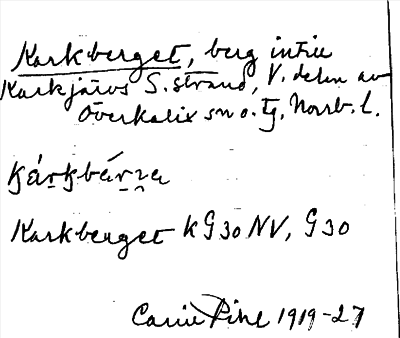 Karkberget, berg intill
Karkjärvs S. strand, V. delen av
Överkalix sn o. tg, Norrb. l.
Karkberget KG30 NV, G30
Carin Pihl 1919-27